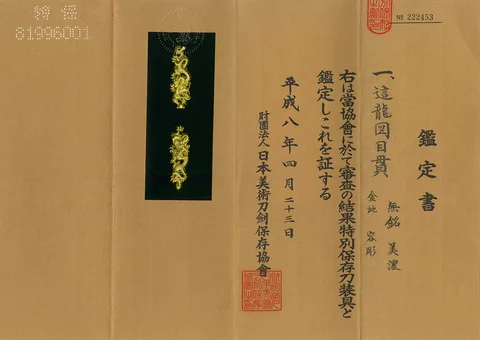 鑑定書
一、這龍図目貫
無銘 美濃
金地 容彫
右は當協會に於て審査の結果特別保存刀装具と
鑑定しこれを証する
平成八年四月二十三日
財團法人日本美術刀劍保存協會
№ 222453
特保
81996001